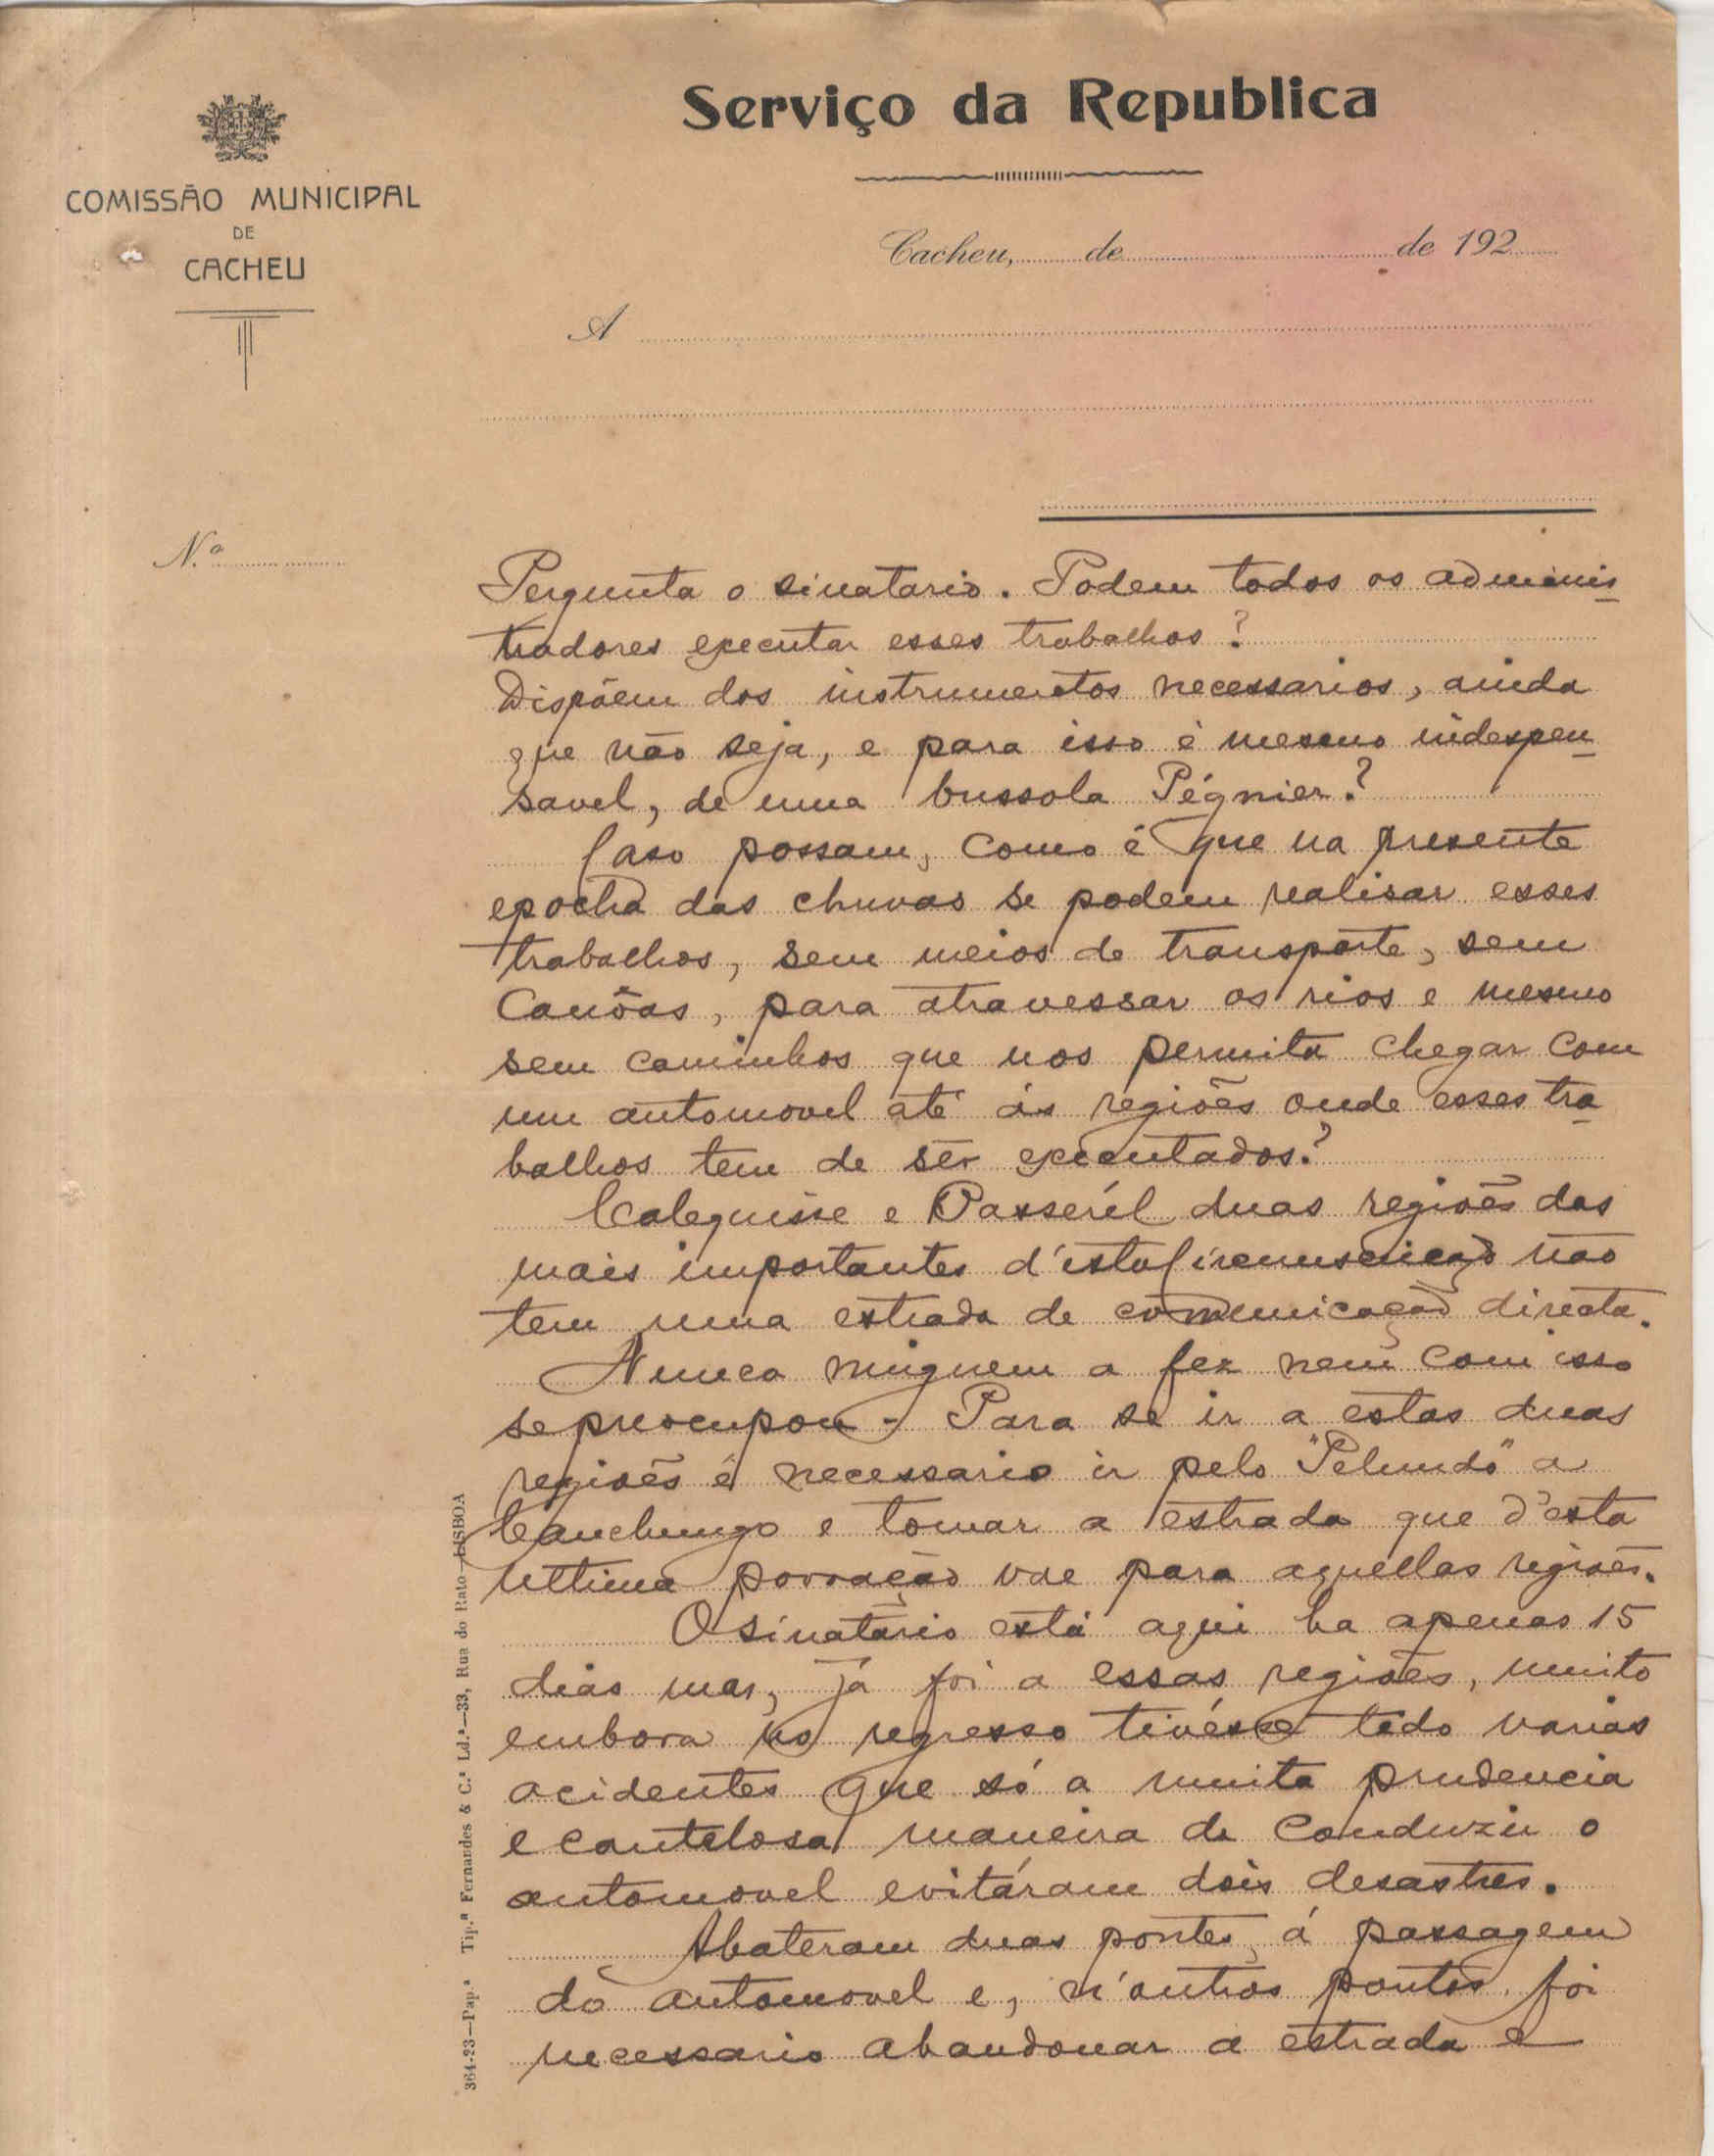 Serviço da Republica
COMISSÃO MUNICIPAL
DE
CACHEU
Cacheu, de de 192
A
N.º
Pergunta o sinatario. Podem todos os adminis
tradores executar esses trabalhos?
Dispõem dos instrumentos necessarios, ainda
que não seja, e para isso é mesmo indespen
savel, de uma bussola Pégnier?
Caso possam, como é que na presente
epocha das chuvas se podem realisar esses
trabalhos, sem meios de transporte, sem
canôas, para atravessar os rios e mesmo
sem caminhos que nos permita chegar com
um automovel até ás regiões onde esses tra
balhos tem de ser executados?
Calequisse e Basserél duas regiões das
mais importantes d'esta Circunscrição não
tem uma estrada de comunicação directa.
Nunca ninguem a fez nem com isso
se preocupou - Para se ir a estas duas
regiões é necessario ir pelo "Pelundo" a
Canchungo e tomar a estrada que d'esta
ultima povoação vae para aquellas regiões.
O sinatário está aqui ha apenas 15
dias mas, já foi a essas regiões, muito
embora no regresso tivésse tido varios
acidentes que só a muita prudencia
e cautelosa maneira de conduzir o
automovel evitáram dois desastres.
Abateram duas pontes, á passagem
do automovel e, n'outros pontos, foi
necessario abandonar a estrada e
364-23—Pap.ª Tip.ª Fernandes & C.ª Ld.ª—33, Rua do Rato—LISBOA